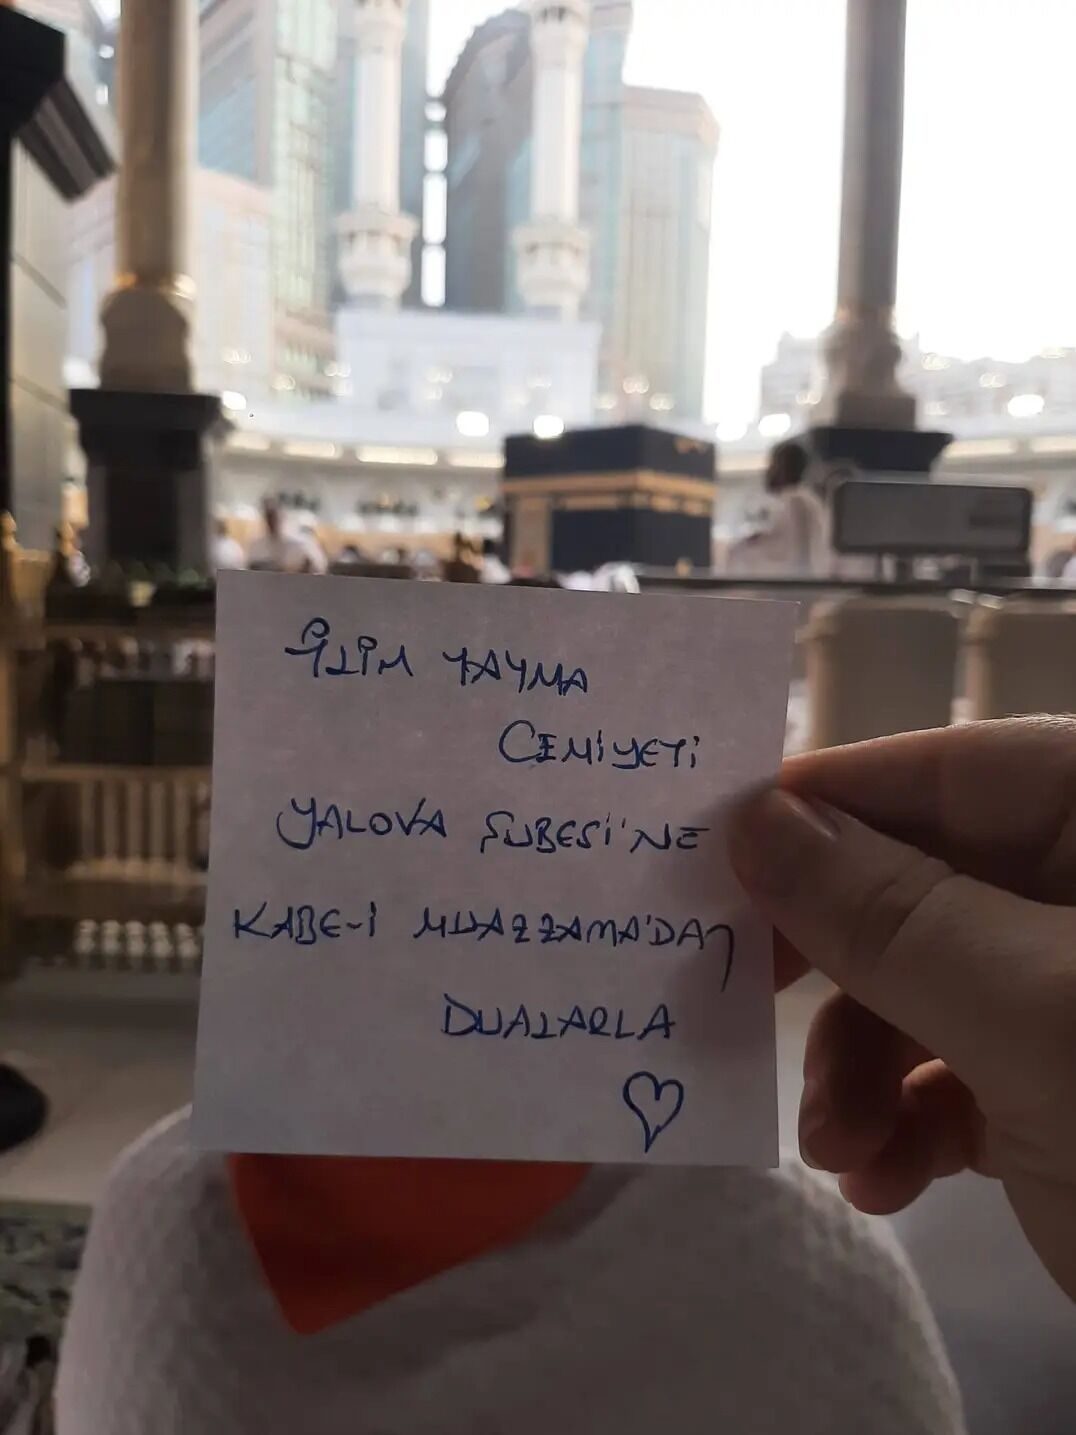 İLİM YAYMA
CEMİYETİ
YALOVA ŞUBESİ'NE
KABE-İ MUAZZAMA'DAN
DUALARLA